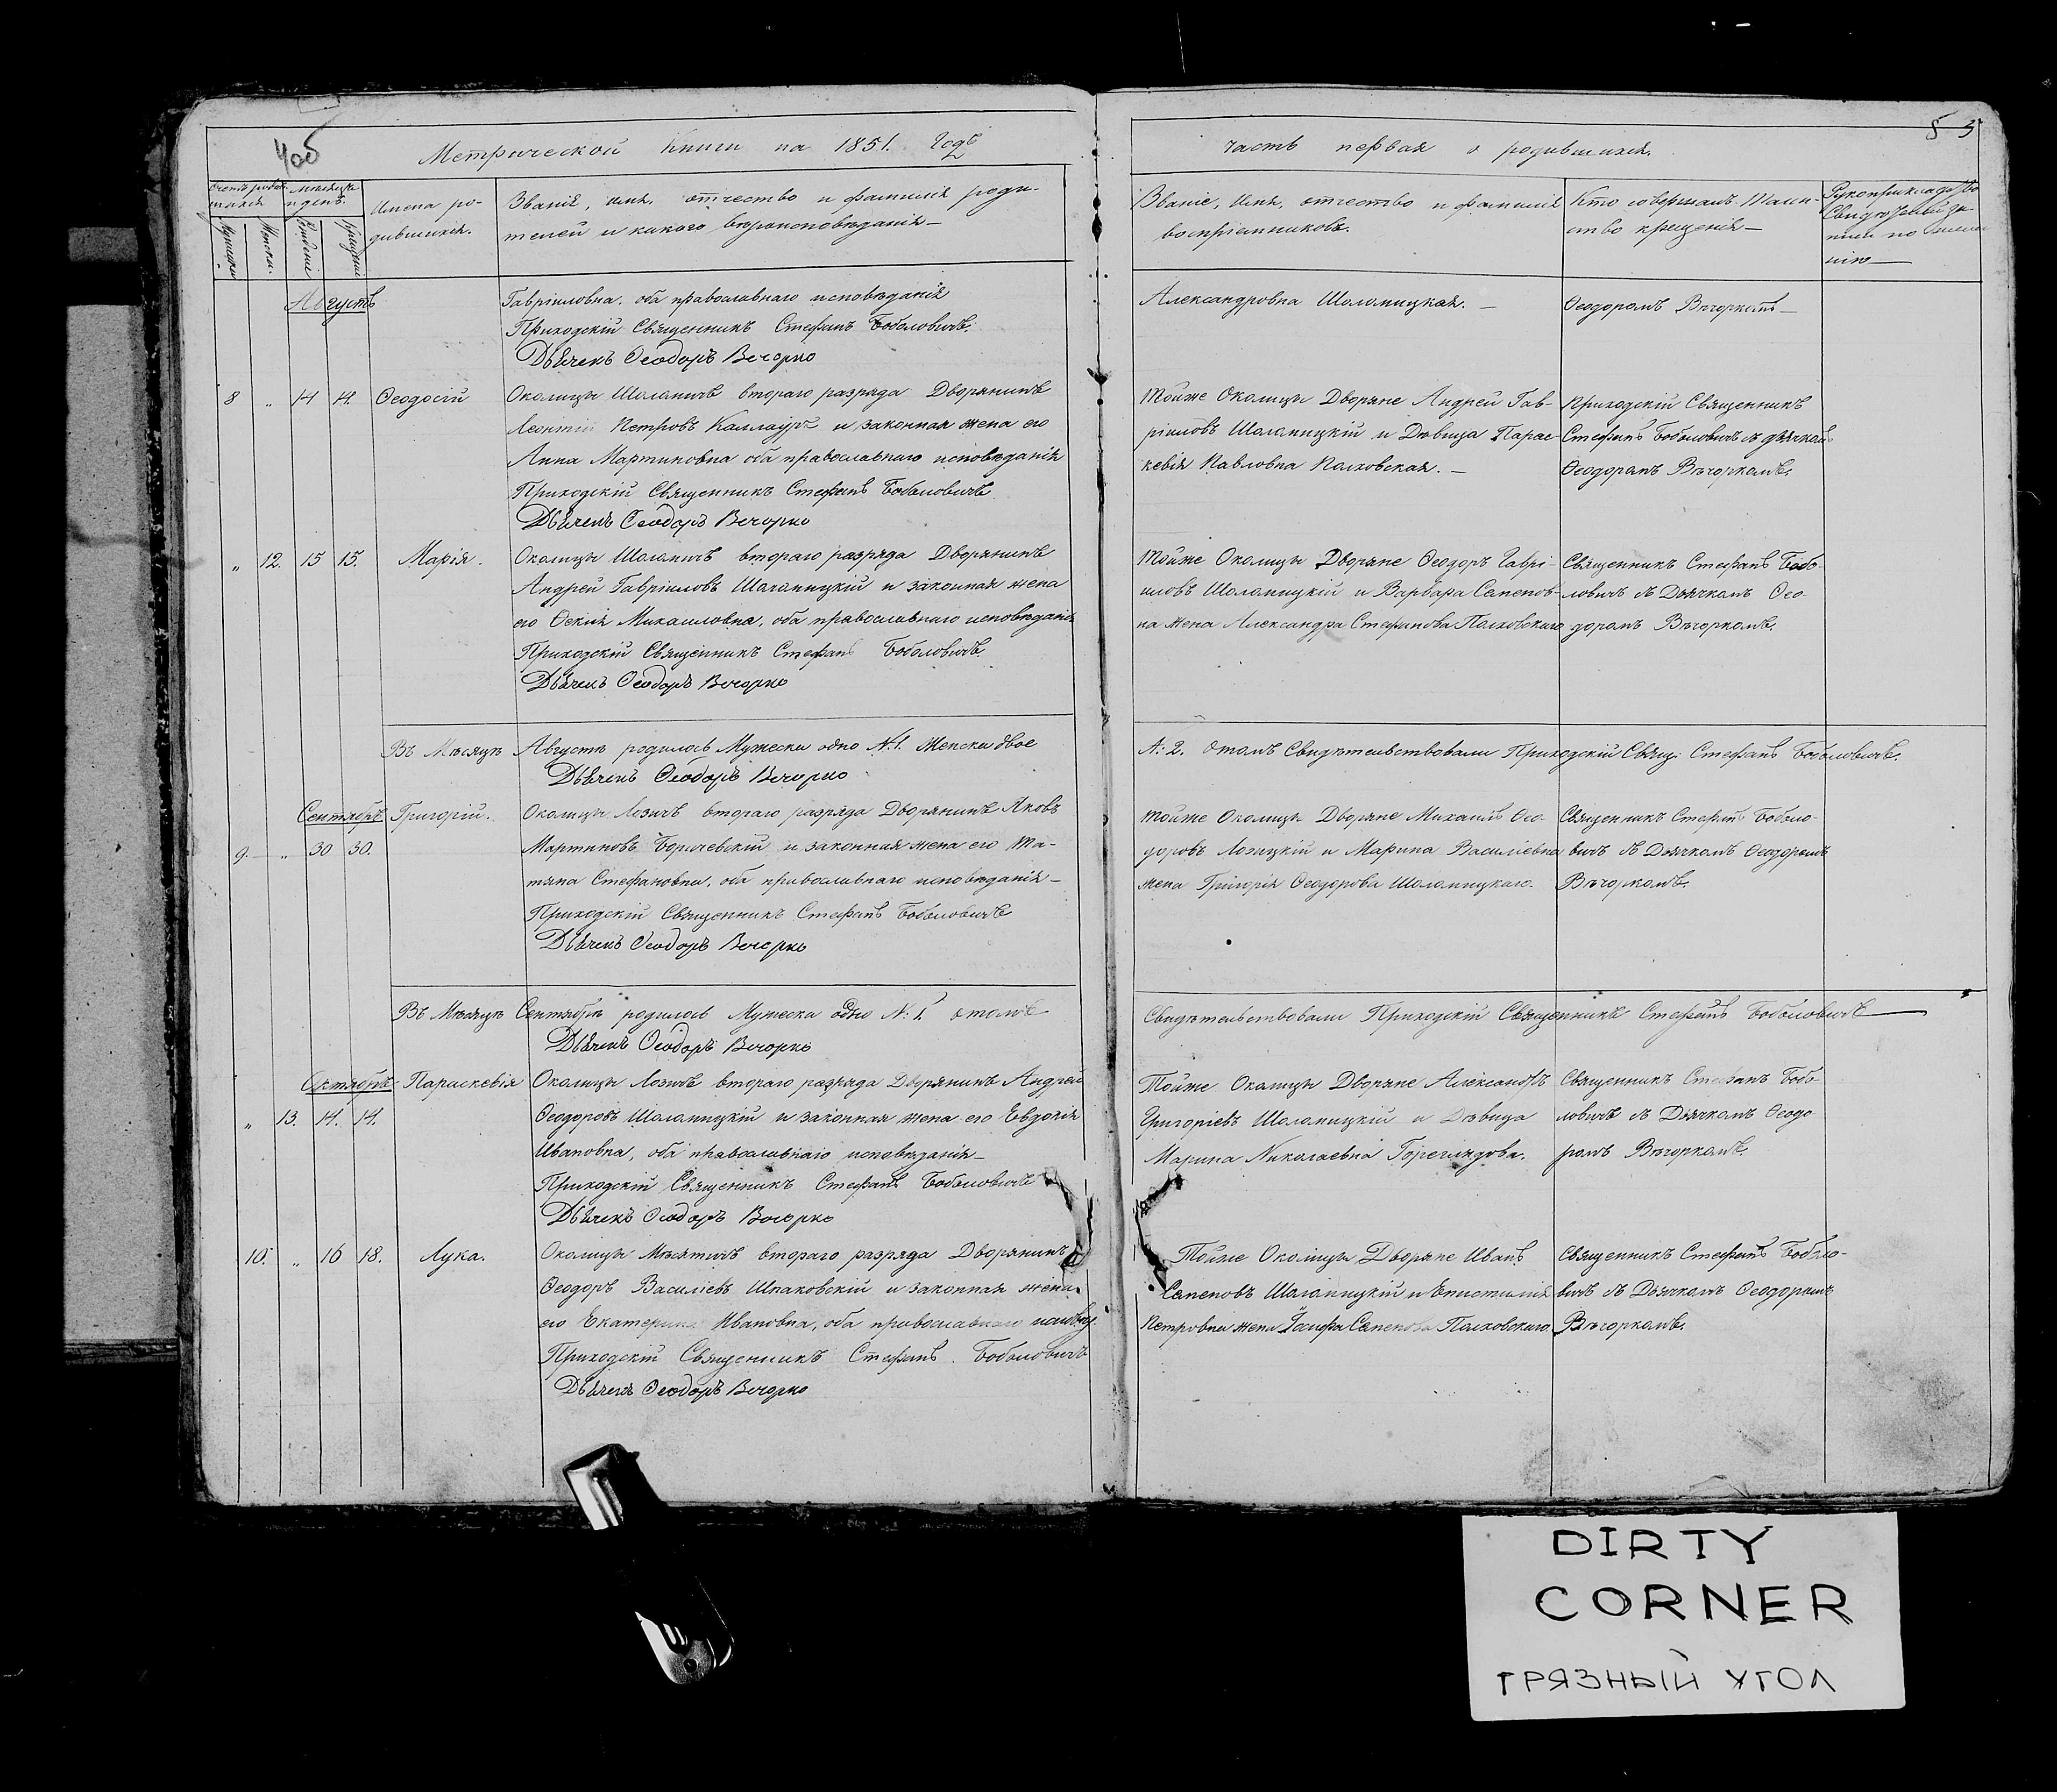 4об
5
Метрической Книги на 1851. Годъ
часть первая о родившихся.
Имена ро-
дившихся.
Званія, имя, отчество и фамилія роди-
телей и какого вѣроисповѣданія —
Званіе, Имя, отчество и фамилія
воспріемниковъ.
Кто совершалъ Таин-
ство крещенія —
Августъ
Гавріиловна, оба православнаго исповѣданія
Приходскій Священникъ Стефанъ Боболовичъ.
Дьячекъ Ѳеодоръ Вечорко
Александровна Шоломицкая. —
Ѳеодоромъ Вѣчоркомъ —
8 „ 14 14. Ѳеодосій
Околицы Шоломичъ втораго разряда Дворянинъ
Леонтій Петровъ Каллауръ и законная жена его
Анна Мартиновна оба православнаго исповѣданія
Приходскій Священникъ Стефанъ Боболовичъ
Дьячекъ Ѳеодоръ Вечорко
Тойже Околицы Дворяне Андрей Гав-
ріиловъ Шоломицкій и Дѣвица Парас-
кевія Павловна Полховская. —
Приходскій Священникъ
Стефанъ Боболовичъ съ дьячкомъ
Ѳеодоромъ Вѣчоркомъ.
„ 12. 15 15. Марія.
Околицы Шоломичъ втораго разряда Дворянинъ
Андрей Гавріиловъ Шоломицкій и законная жена
его Ѳекля Михаиловна, оба православнаго исповѣданія
Приходскій Священникъ Стефанъ Боболовичъ
Дьячекъ Ѳеодоръ Вечорко
Тойже Околицы Дворяне Ѳеодоръ Гаврі-
иловъ Шоломицкій и Варвара Семенов-
на жена Александра Стефанова Полховскаго
Священникъ Стефанъ Бобо-
ловичъ съ Дьячкомъ Ѳео-
доромъ Вѣчоркомъ.
Въ Мѣсяцѣ Августѣ родилось Мужеска одно №1. Женска двое
Дьячекъ Ѳеодоръ Вечорко
№: 2. Отомъ Свидѣтельствовали Приходскій Свящ: Стефанъ Боболовичъ.
Сентябрь Григорій.
9. „ 30 30.
Околицы Лозичъ втораго разряда Дворянинъ Яковъ
Мартиновъ Боричевскій и законная жена его Та-
тяна Стефановна, оба православнаго исповѣданія —
Приходскій Священникъ Стефанъ Боболовичъ
Дьячекъ Ѳеодоръ Вечорко
Тойже Околицы Дворяне Михаилъ Ѳео-
доровъ Лозицкій и Марина Василіевна
жена Григорія Ѳеодорова Шоломицкаго.
Священникъ Стефанъ Боболо-
вичъ съ Дьячкомъ Ѳеодоромъ
Вѣчоркомъ.
Въ Мѣсяцѣ Сентябрѣ родилось Мужеска одно №: 1. отомъ
Дьячекъ Ѳеодоръ Вечорко
Свидѣтельствовали Приходскій Священникъ Стефанъ Боболовичъ
Октябрь Параскевія
„ 13. 14. 14.
Околицы Лозичъ втораго разряда Дворянинъ Андрей
Ѳеодоровъ Шоломицкій и законная жена его Евдокія
Ивановна, оба православнаго исповѣданія —
Приходскій Священникъ Стефанъ Боболовичъ
Дьячекъ Ѳеодоръ Вечорко
Тойже Околицы Дворяне Александръ
Григоріевъ Шоломицкій и Дѣвица
Марина Николаевна
Священникъ Стефанъ Бобо-
ловичъ съ Дьячкомъ Ѳеодо-
ромъ Вѣчоркомъ.
10. „ 16 18. Лука.
Околицы Мѣсятичъ втораго разряда Дворянинъ
Ѳеодоръ Василіевъ Шпаковскій и законная жена
его Екатерина Ивановна, оба православнаго исповѣд.
Приходскій Священникъ Стефанъ Боболовичъ
Дьячекъ Ѳеодоръ Вечорко
Тойже Околицы Дворяне Иванъ
Семеновъ Шоломицкій и Епистимія
Петровна жена Іосифа Семенова Полховскаго
Священникъ Стефанъ Боболо-
вичъ съ Дьячкомъ Ѳеодоромъ
Вѣчоркомъ.
DIRTY
CORNER
ГРЯЗНЫЙ УГОЛ